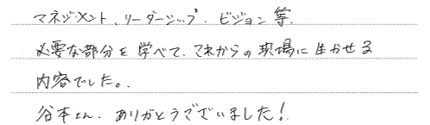 マネジメント、リーダーシップ、ビジョン等、
必要な部分を学べて、これからの現場に生かせる
内容でした。
谷本さん、ありがとうございました!